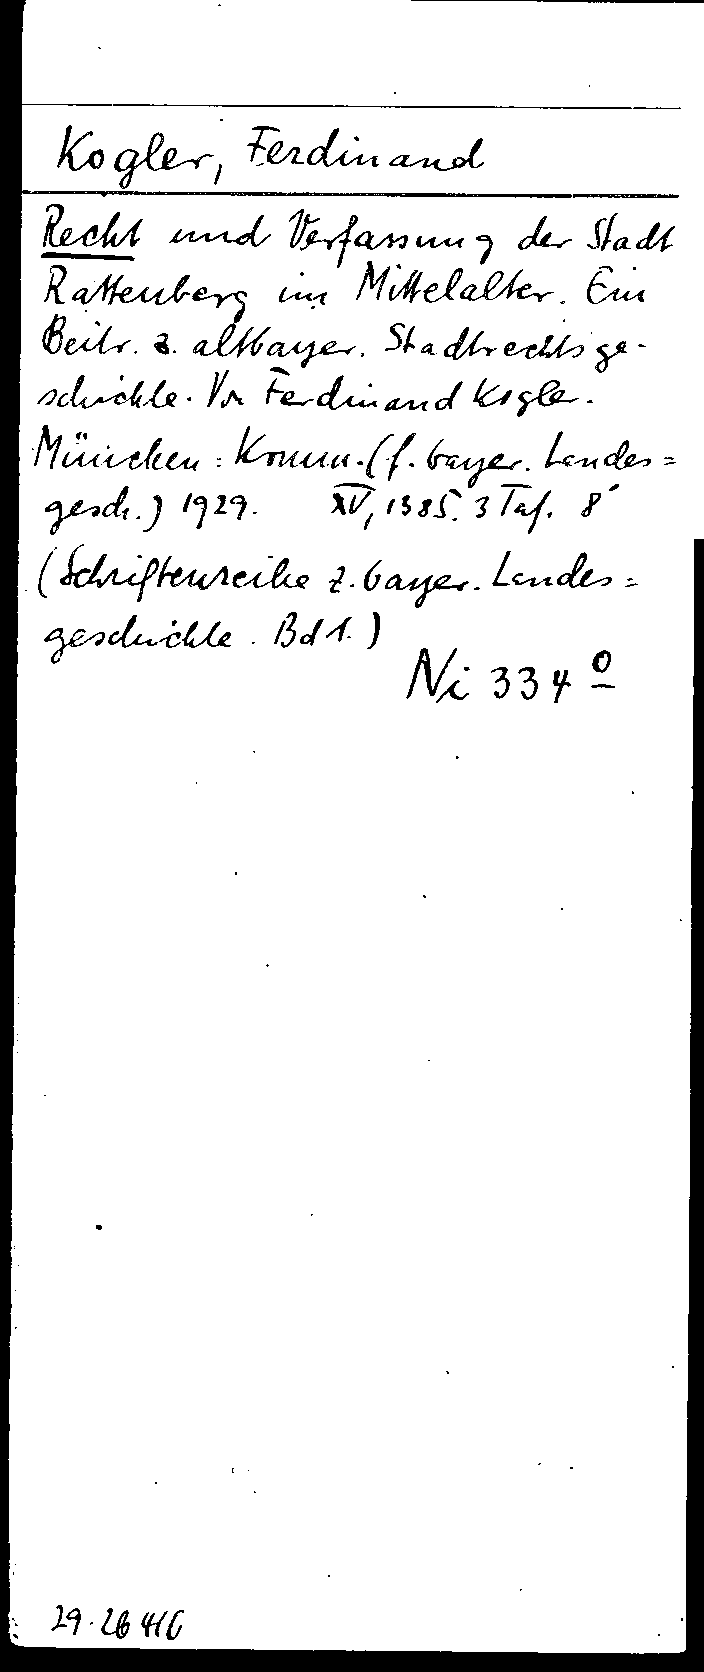 Kogler, Ferdinand
Recht und Verfassung der Stadt
Rattenberg im Mittelalter. Ein
Beitr. z. altbayer. Stadtrechtsge-
schichte. Von Ferdinand Kogler.
München: Komm. (f. bayer. Landes=
gesch.) 1929. XV, 138 S. 3 Taf. 8°
(Schriftenreihe z. bayer. Landes=
geschichte. Bd 1.)
Ni 334 º
29.